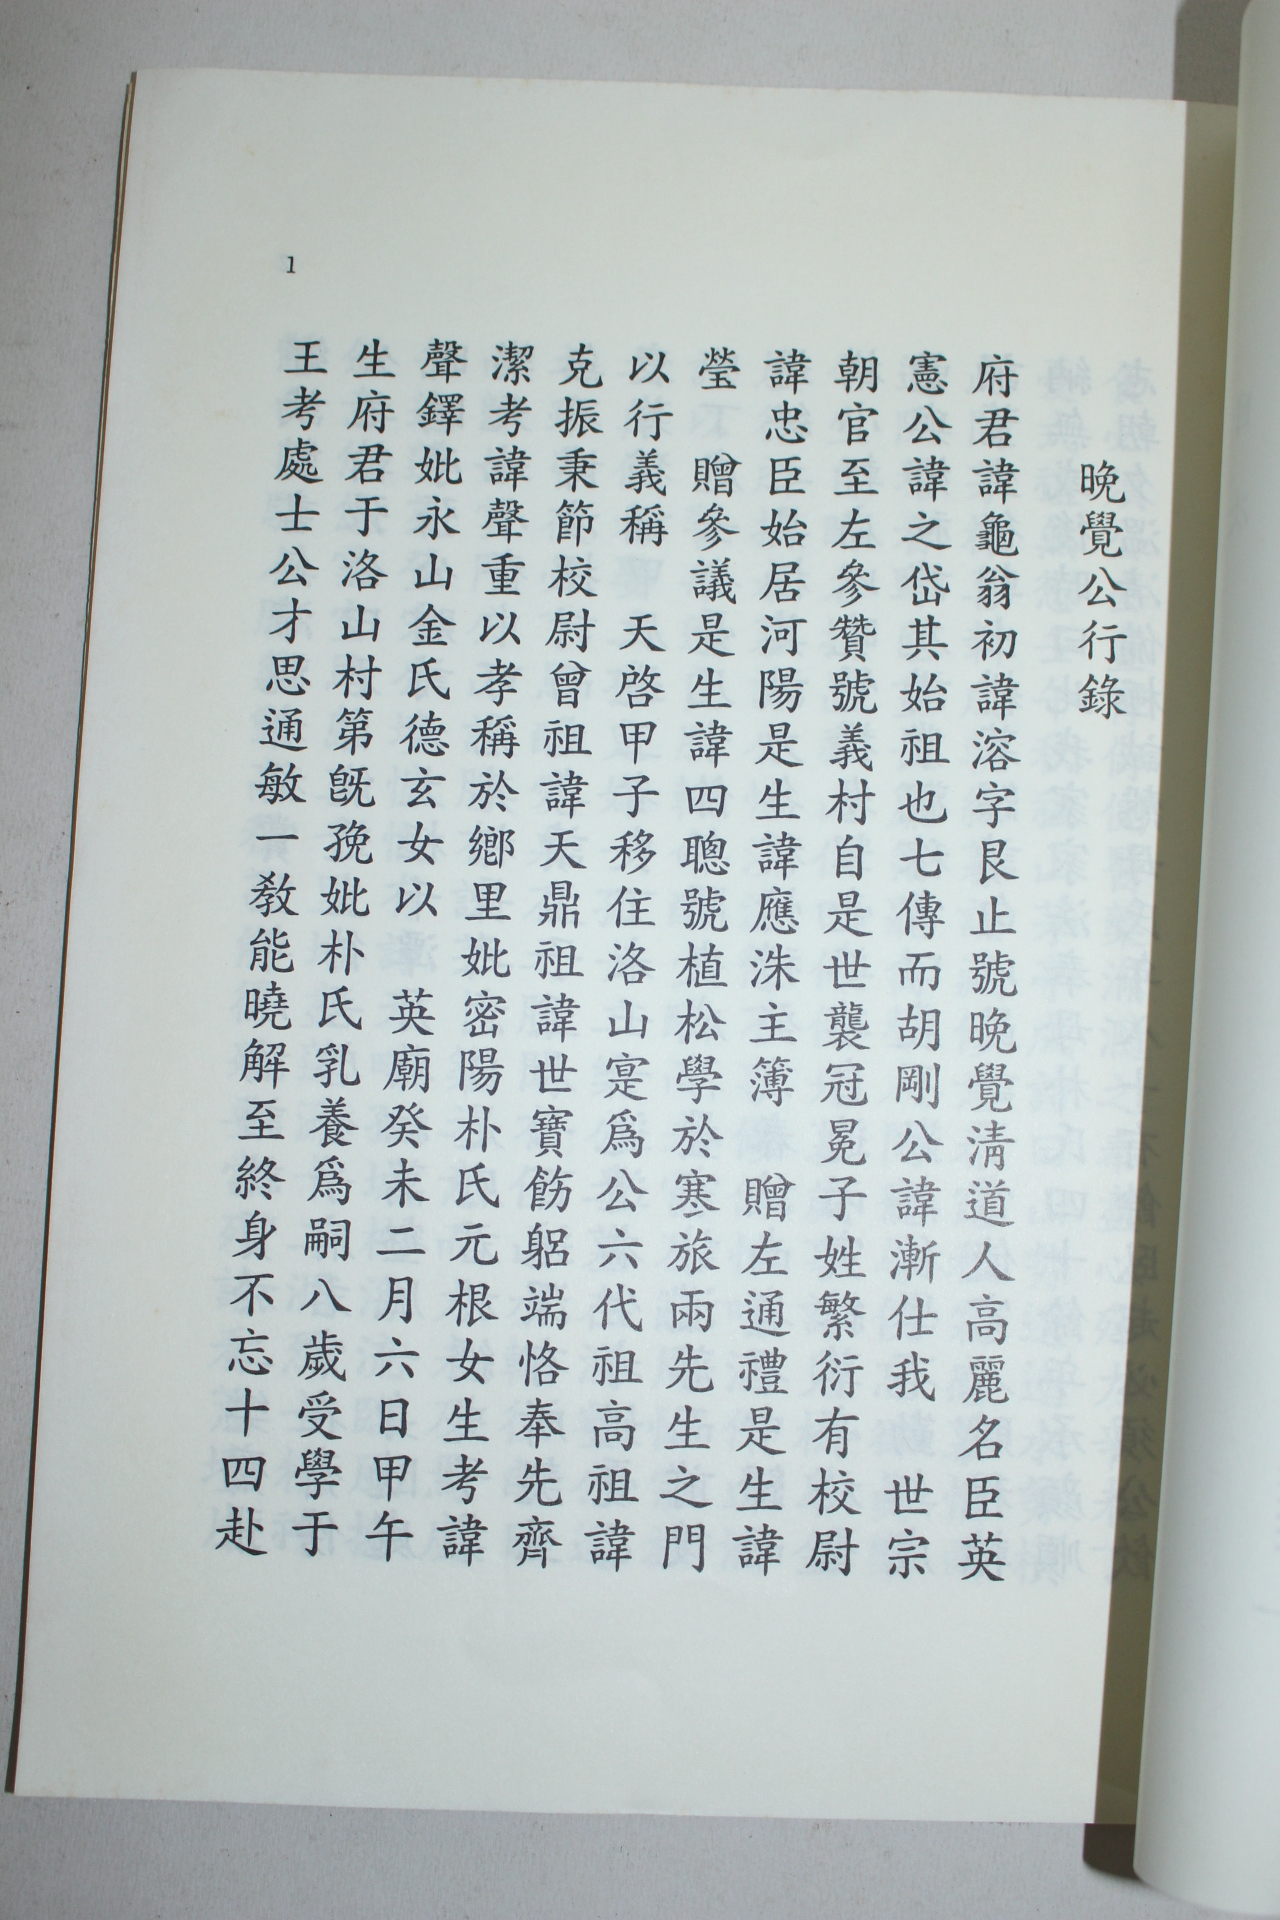 晩覺公行錄
府君諱龜翁初諱溶字艮止號晩覺淸道人高麗名臣英
憲公諱之岱其始祖也七傳而胡剛公諱漸仕我 世宗
朝官至左參贊號義村自是世襲冠冕子姓繁衍有校尉
諱忠臣始居河陽是生諱應洙主簿 贈左通禮是生諱
瑩 贈參議是生諱四聰號植松學於寒旅兩先生之門
以行義稱 天啓甲子移住洛山寔爲公六代祖高祖諱
克振秉節校尉曾祖諱天鼎祖諱世寶飭躬端恪奉先齊
潔考諱聲重以孝稱於鄕里妣密陽朴氏元根女生考諱
聲鐸妣永山金氏德玄女以 英廟癸未二月六日甲午
生府君于洛山村第旣㝃妣朴氏乳養爲嗣八歲受學于
王考處士公才思通敏一敎能曉解至終身不忘十四赴
1